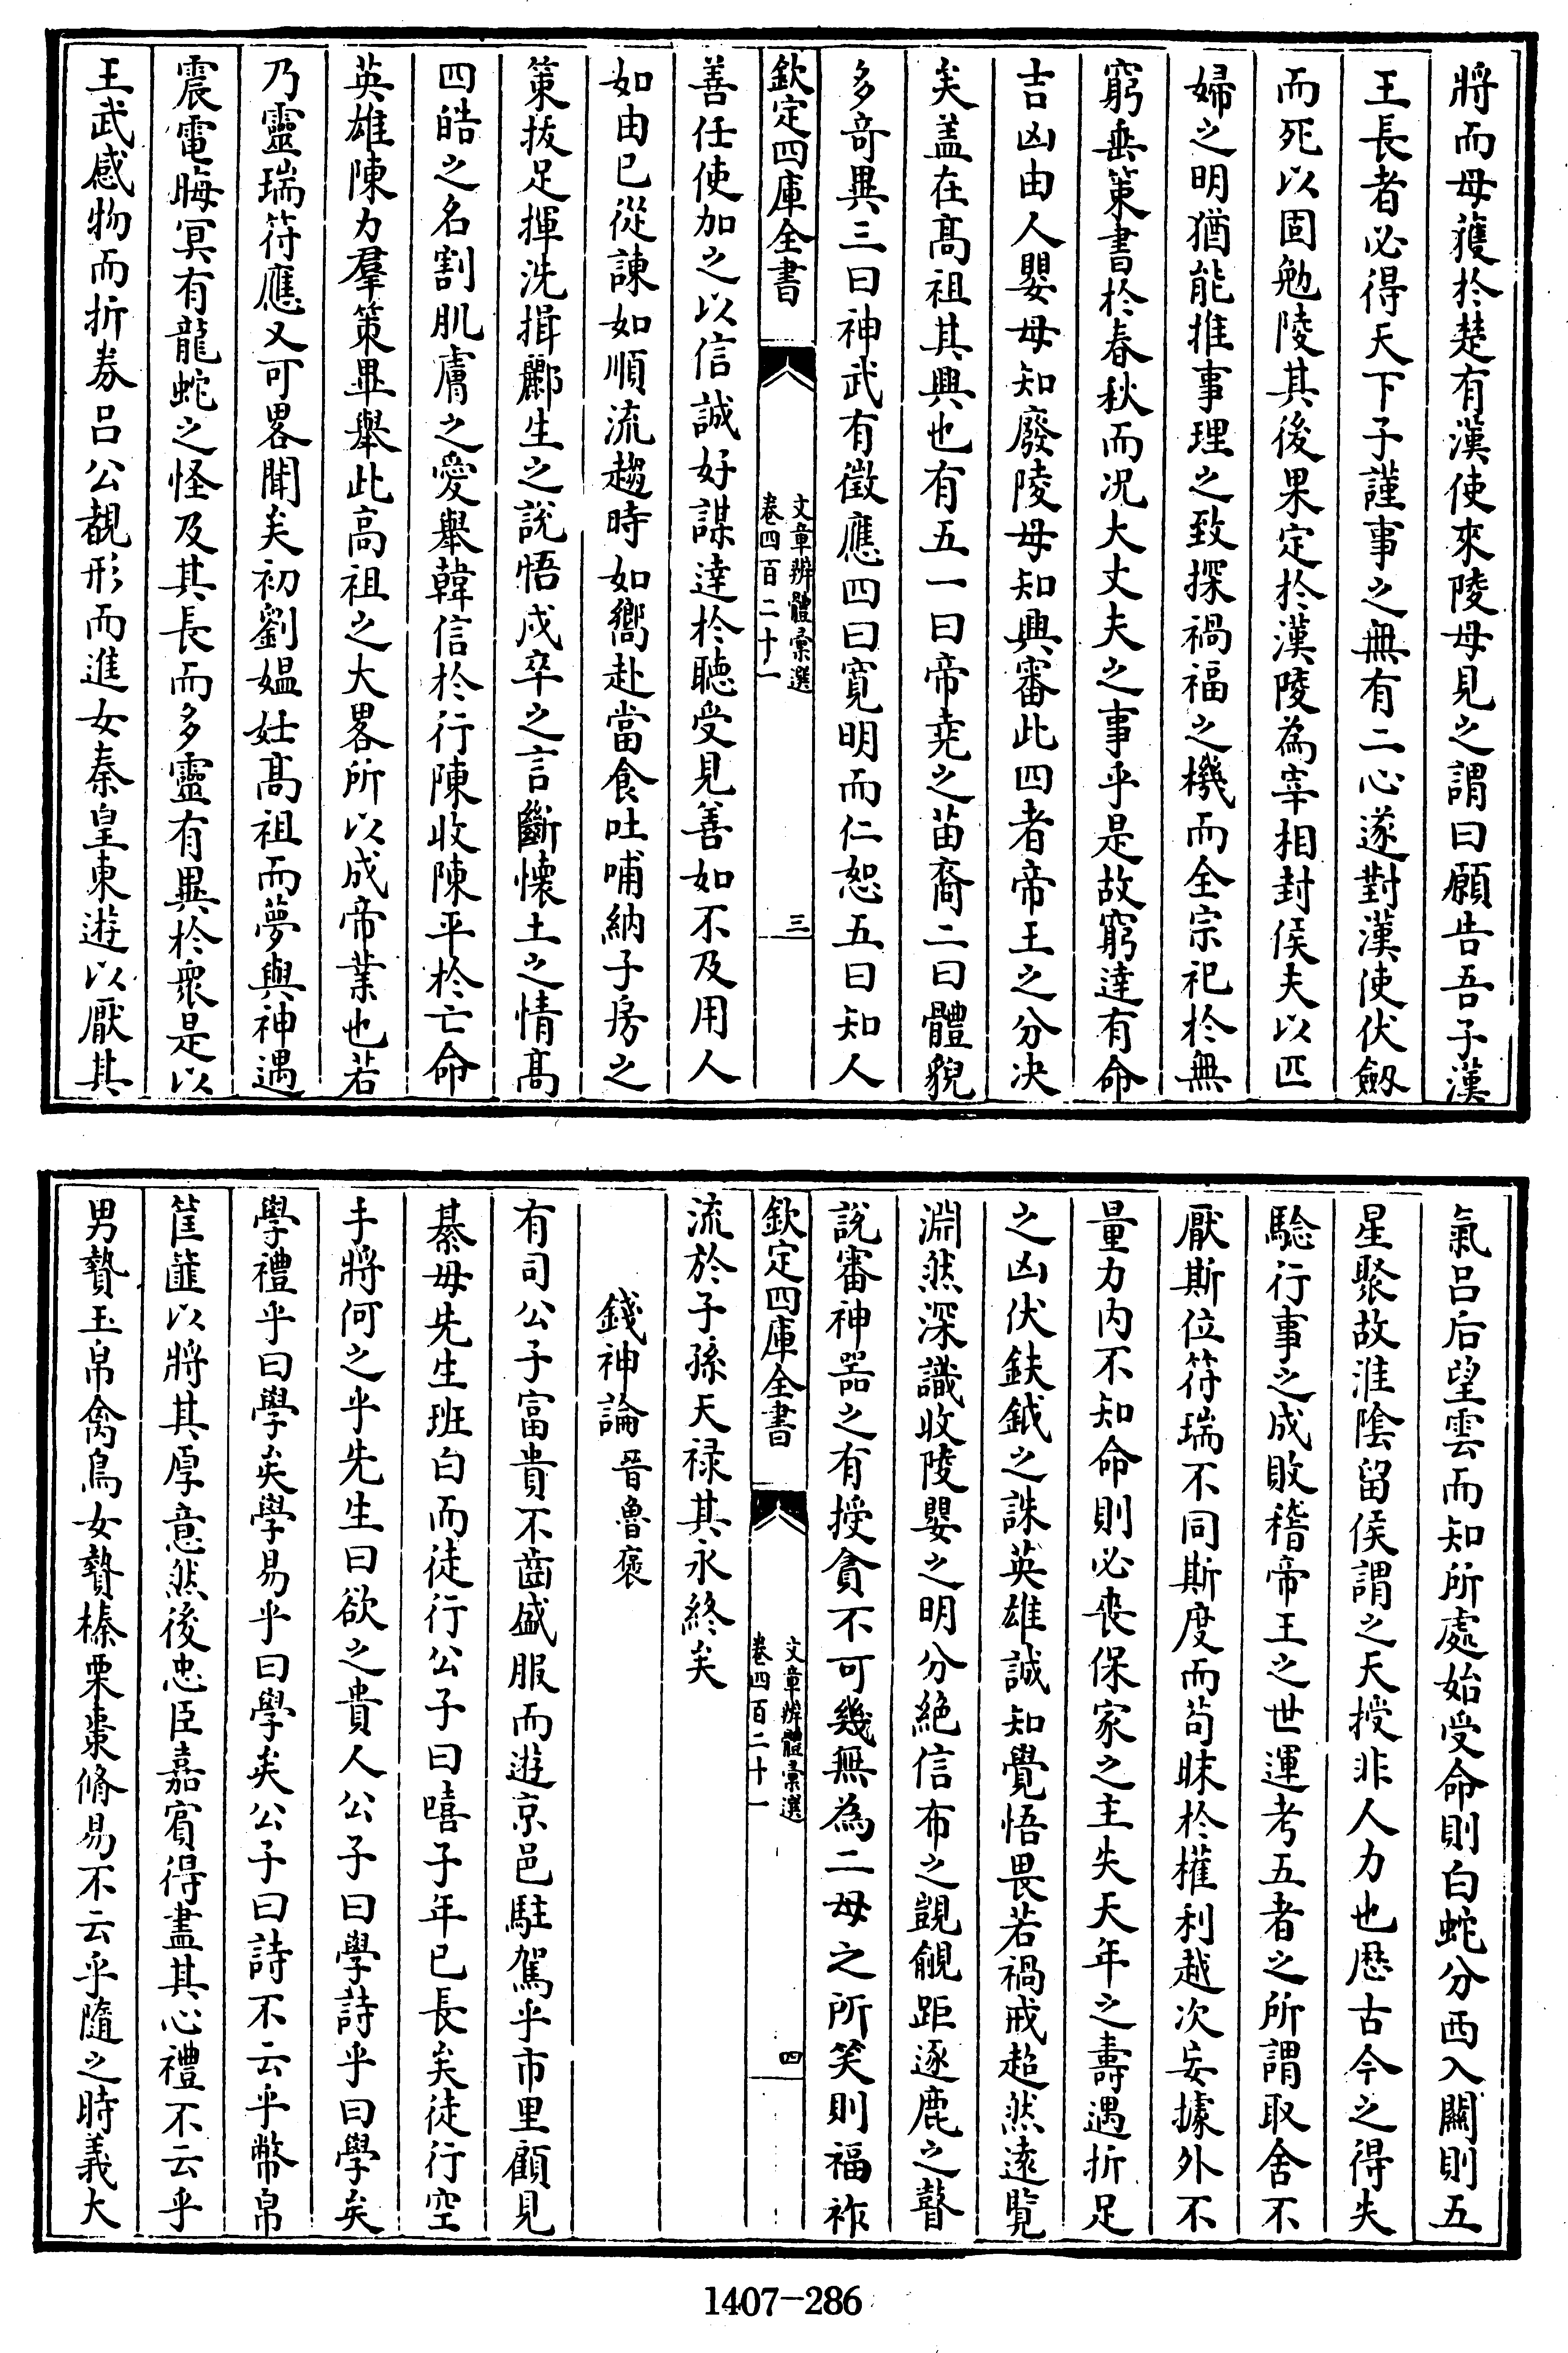 將而母獲於楚有漢使來陵母見之謂曰願告吾子漢
王長者必得天下子謹事之無有二心遂對漢使伏劒
而死以固勉陵其後果定於漢陵為宰相封侯夫以匹
婦之明猶能推事理之致探禍福之機而全宗祀於無
窮垂策書於春秋而况大丈夫之事乎是故窮達有命
吉凶由人嬰母知廢陵母知興審此四者帝王之分决
矣盖在髙祖其興也有五一曰帝堯之苗裔二曰體貌
多奇異三曰神武有徵應四曰寛明而仁恕五曰知人
欽定四庫全書
文章辨體彙選
卷四百二十一
三
善任使加之以信誠好謀達於聽受見善如不及用人
如由已從諫如順流趨時如嚮赴當食吐哺納子房之
策拔足揮洗揖酈生之說悟戍卒之言斷懷土之情髙
四皓之名割肌膚之愛舉韓信於行陳收陳平於亡命
英雄陳力羣策畢舉此高祖之大畧所以成帝業也若
乃靈瑞符應又可畧聞矣初劉媪妊髙祖而夢與神遇
震電晦冥有龍蛇之怪及其長而多靈有異於衆是以
王武感物而折券呂公覩形而進女秦皇東遊以厭其
氣呂后望雲而知所處始受命則白蛇分西入關則五
星聚故淮陰留侯謂之天授非人力也歴古今之得失
驗行事之成敗稽帝王之世運考五者之所謂取舍不
厭斯位符瑞不同斯度而茍昧於權利越次妄據外不
量力内不知命則必喪保家之主失天年之壽遇折足
之凶伏鈇鉞之誅英雄誠知覺悟畏若禍戒超然逺覽
淵然深識收陵嬰之明分絶信布之覬覦距逐鹿之瞽
說審神器之有授貪不可幾無為二母之所笑則福祚
欽定四庫全書
文章辨體彙選
卷四百二十一
四
流於子孫天禄其永終矣
錢神論 晉魯褒
有司公子富貴不齒盛服而遊京邑駐駕乎市里顧見
綦母先生班白而徒行公子曰嘻子年已長矣徒行空
手將何之乎先生曰欲之貴人公子曰學詩乎曰學矣
學禮乎曰學矣學易乎曰學矣公子曰詩不云乎幣帛
筐篚以將其厚意然後忠臣嘉賓得盡其心禮不云乎
男贄玉帛禽鳥女贄榛栗棗脩易不云乎隨之時義大
1407-286